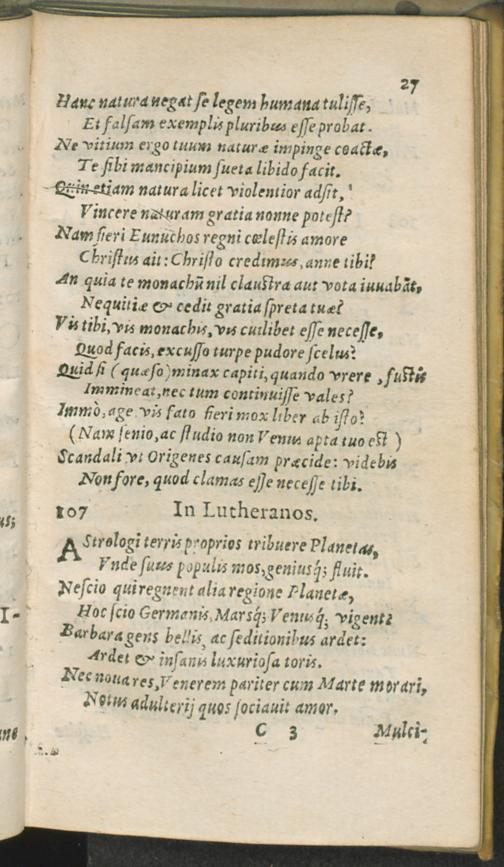 27
Hanc natura negat se legem humana tulisse,
Et falsam exemplis pluribus esse probat.
Ne vitium ergo tuum naturæ impinge coactæ,
Te sibi mancipium sueta libido facit.
Quin etiam natura licet violentior adsit,
Vincere naturam gratia nonne potest?
Nam fieri Eunuchos regni cœlestis amore
Christus ait: Christo credimus, anne tibi?
An quia te monachū nil claustra aut vota iuuabāt,
Nequitiæ & cedit gratia spreta tuæ?
Vis tibi, vis monachis, vis cuilibet esse necesse,
Quod facis, excusso turpe pudore scelus?
Quid si (quæso) minax capiti, quando vrere, fustis
Immineat, nec tum continuisse vales?
Immò, age vis fato fieri mox liber ab isto?
(Nam senio, ac studio non Venus apta tuo est)
Scandali vt Origenes causam præcide: videbis
Non fore, quod clamas esse necesse tibi.
107 In Lutheranos.
AStrologi terris proprios tribuere Planetas,
Vnde suus populis mos, geniusq; fluit.
Nescio qui regnent alia regione Planetæ,
Hoc scio Germanis, Marsq; Venusq; vigent?
Barbara gens bellis, ac seditionibus ardet:
Ardet & insanis luxuriosa toris.
Nec noua res, Venerem pariter cum Marte morari,
Notus adulterij quos sociauit amor.
C 3 Mulci-
us;
I-